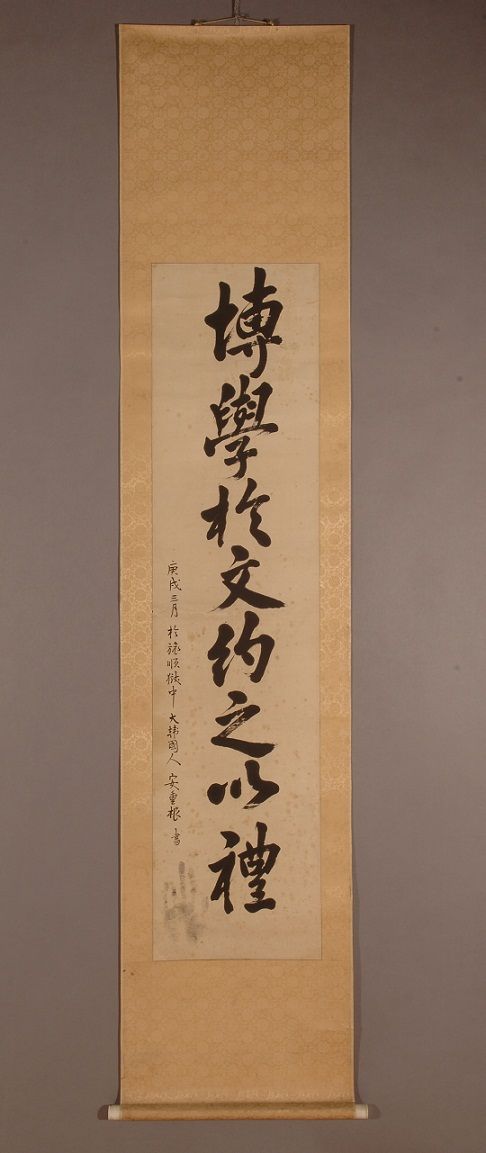 博學於文約之以禮
庚戌三月 於旅順獄中 大韓國人 安重根 書